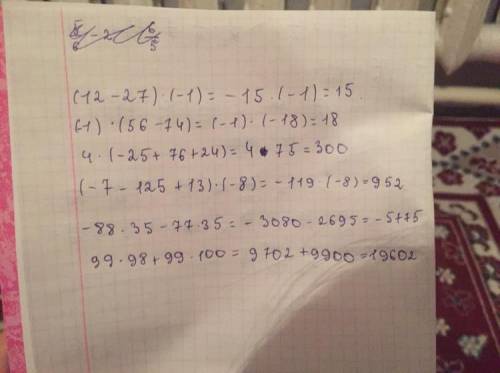 (12 - 27) · (-1) = - 15 · (-1) = 15.
(-1) · (56 - 74) = (-1) · (-18) = 18
4 · (-25 + 76 + 24) = 4 · 75 = 300
(-7 - 125 + 13) · (-8) = -119 · (-8) = 952
-88 · 35 - 77 · 35 = - 3080 - 2695 = -5775
99 · 98 + 99 · 100 = 9702 + 9900 = 19602